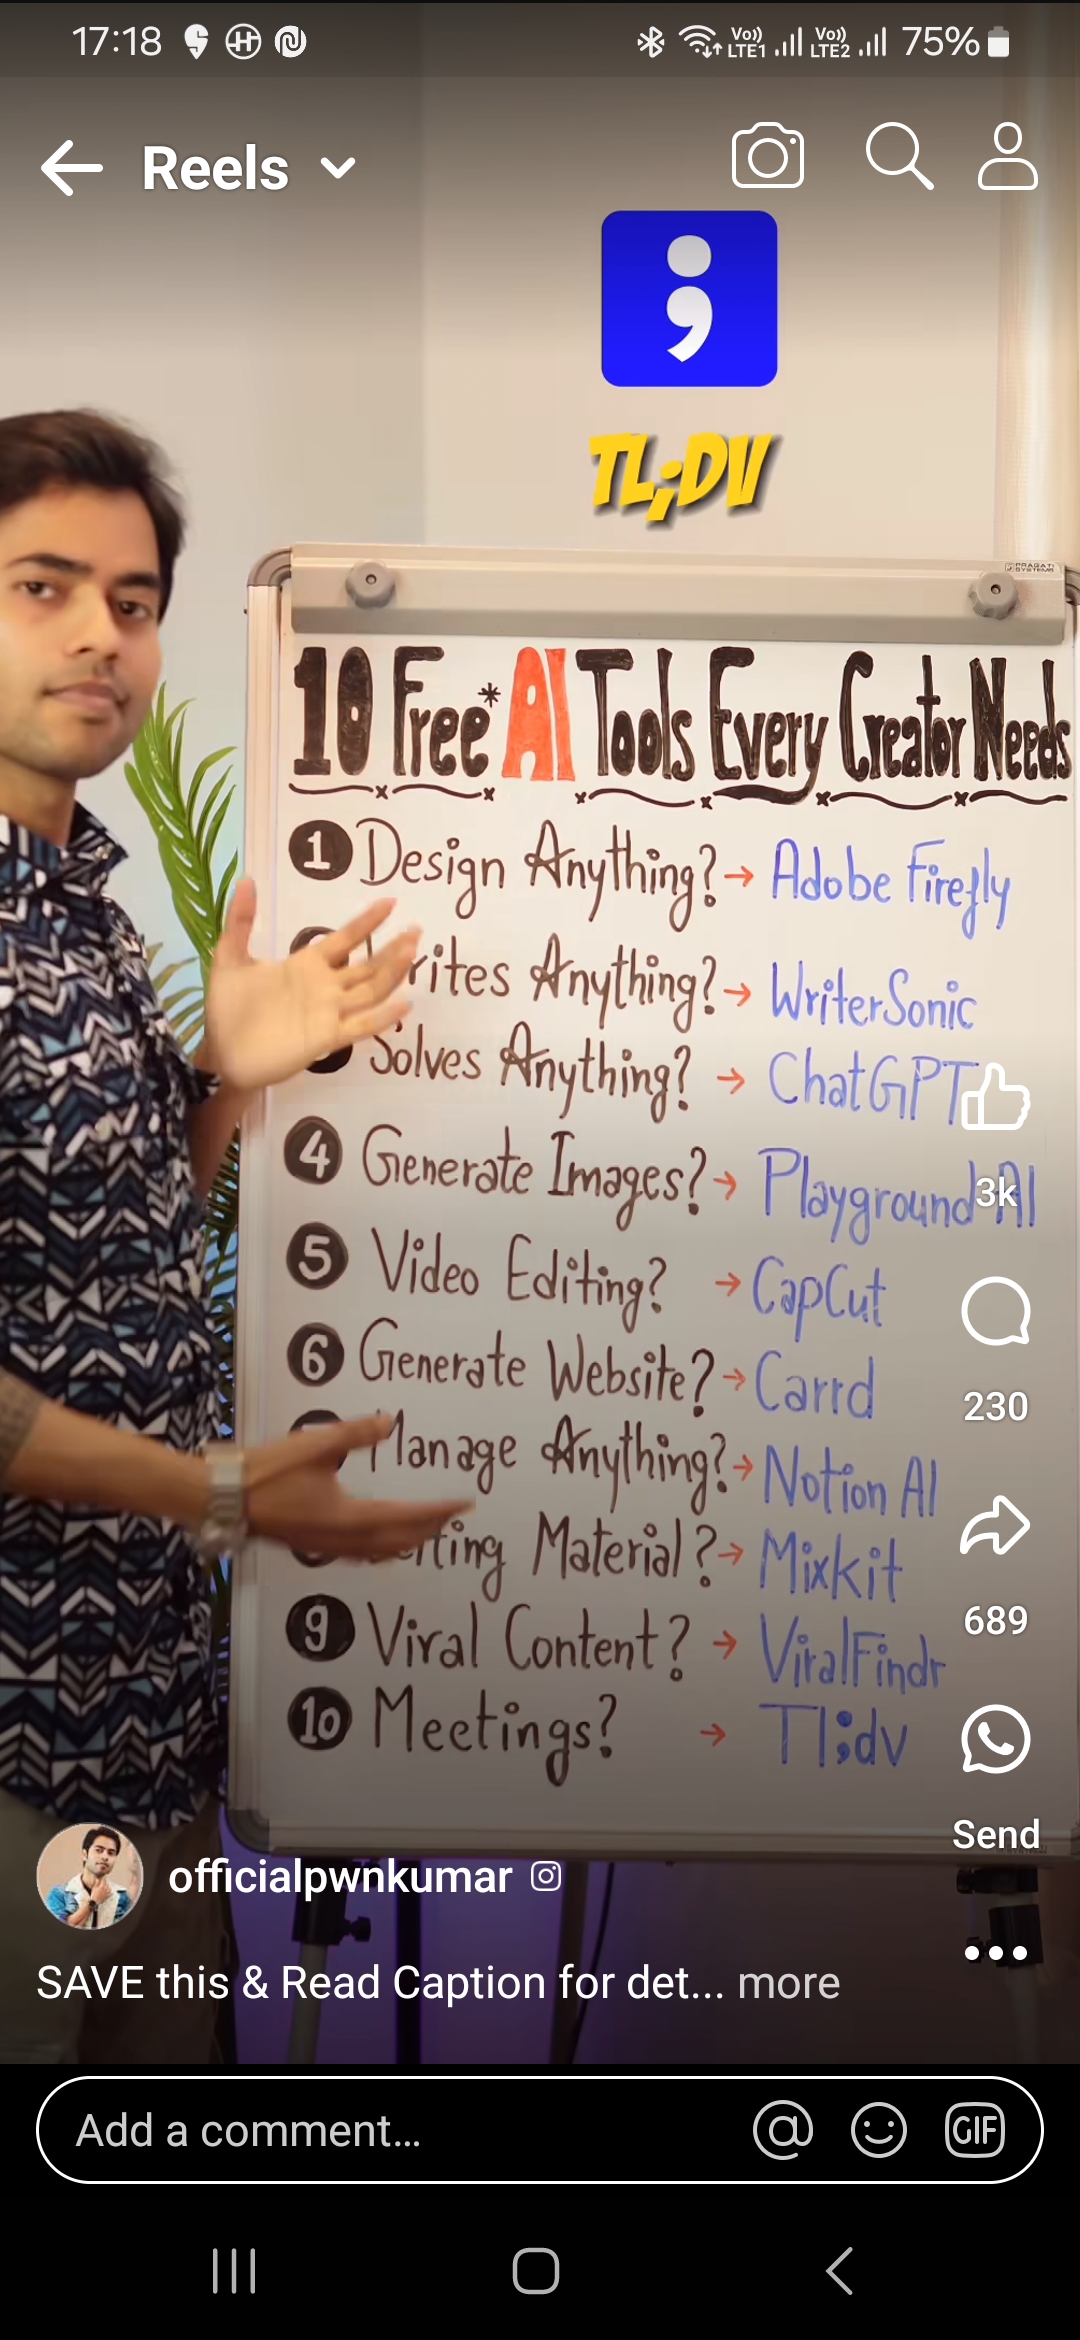 17:18
Vo))
LTE1
Vo))
LTE2
75%
Reels
TL;DV
PRAGATI
SYSTEMS
10 Free* AI Tools Every Creator Needs
1 Design Anything? → Adobe Firefly
rites Anything? → WriterSonic
Solves Anything? → ChatGPT
4 Generate Images? → Playground AI
3k
5 Video Editing? → CapCut
6 Generate Website? → Carrd
230
Manage Anything? → Notion AI
ting Material? → Mixkit
689
9 Viral Content? → ViralFindr
10 Meetings? → Tl;dv
Send
officialpwnkumar
SAVE this & Read Caption for det... more
Add a comment...
@
GIF